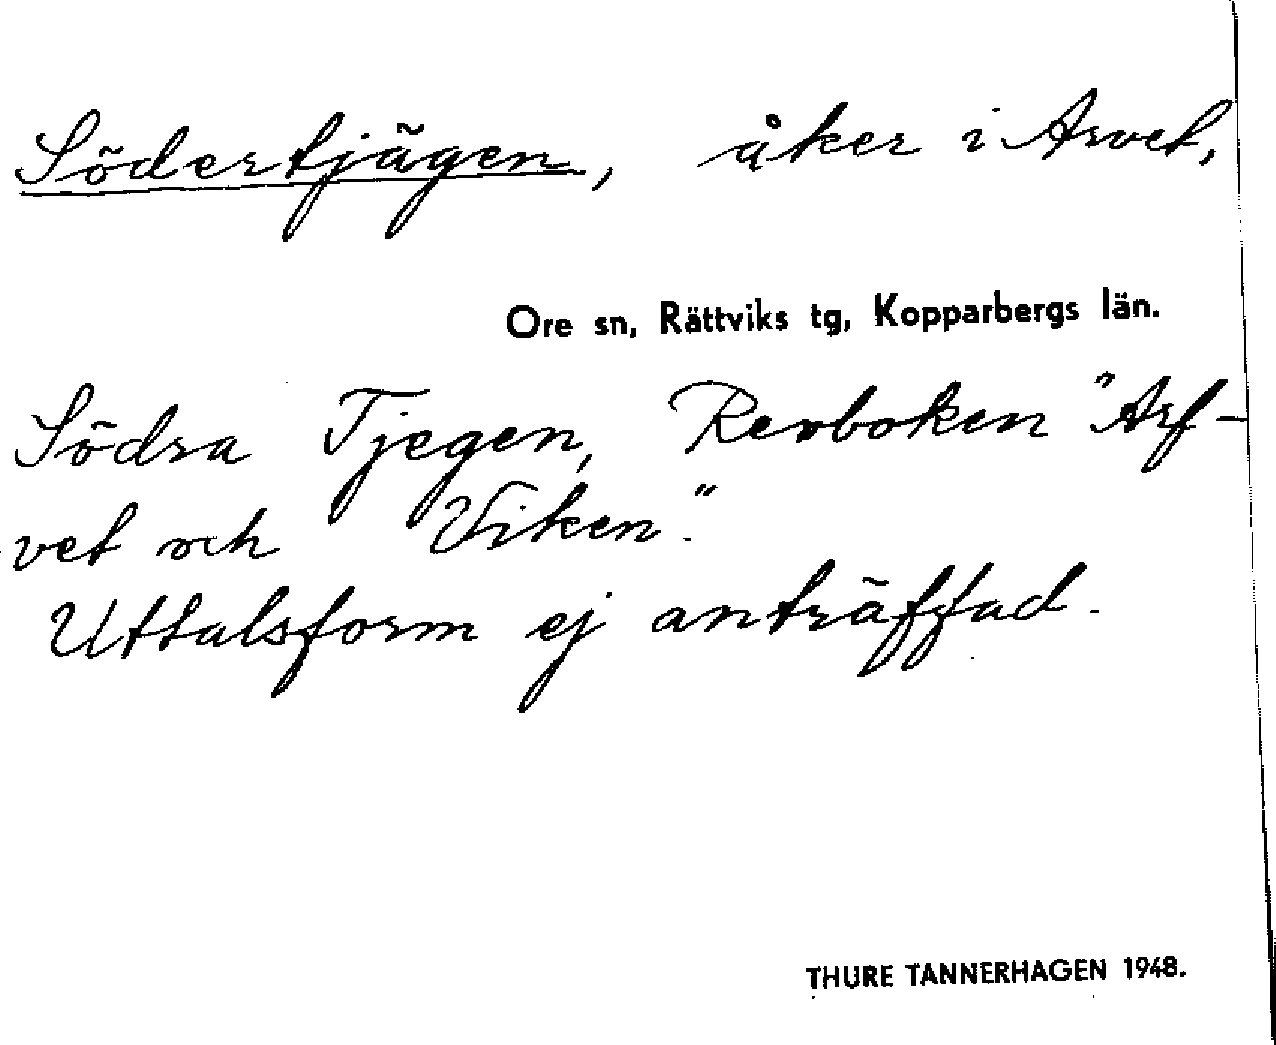 Södertjägen, åker i Arvet,
Ore sn, Rättviks tg, Kopparbergs län.
Södra Tjegen, Revboken "Arf-
vet och Viken."
Uttalsform ej anträffad.
THURE TANNERHAGEN 1948.